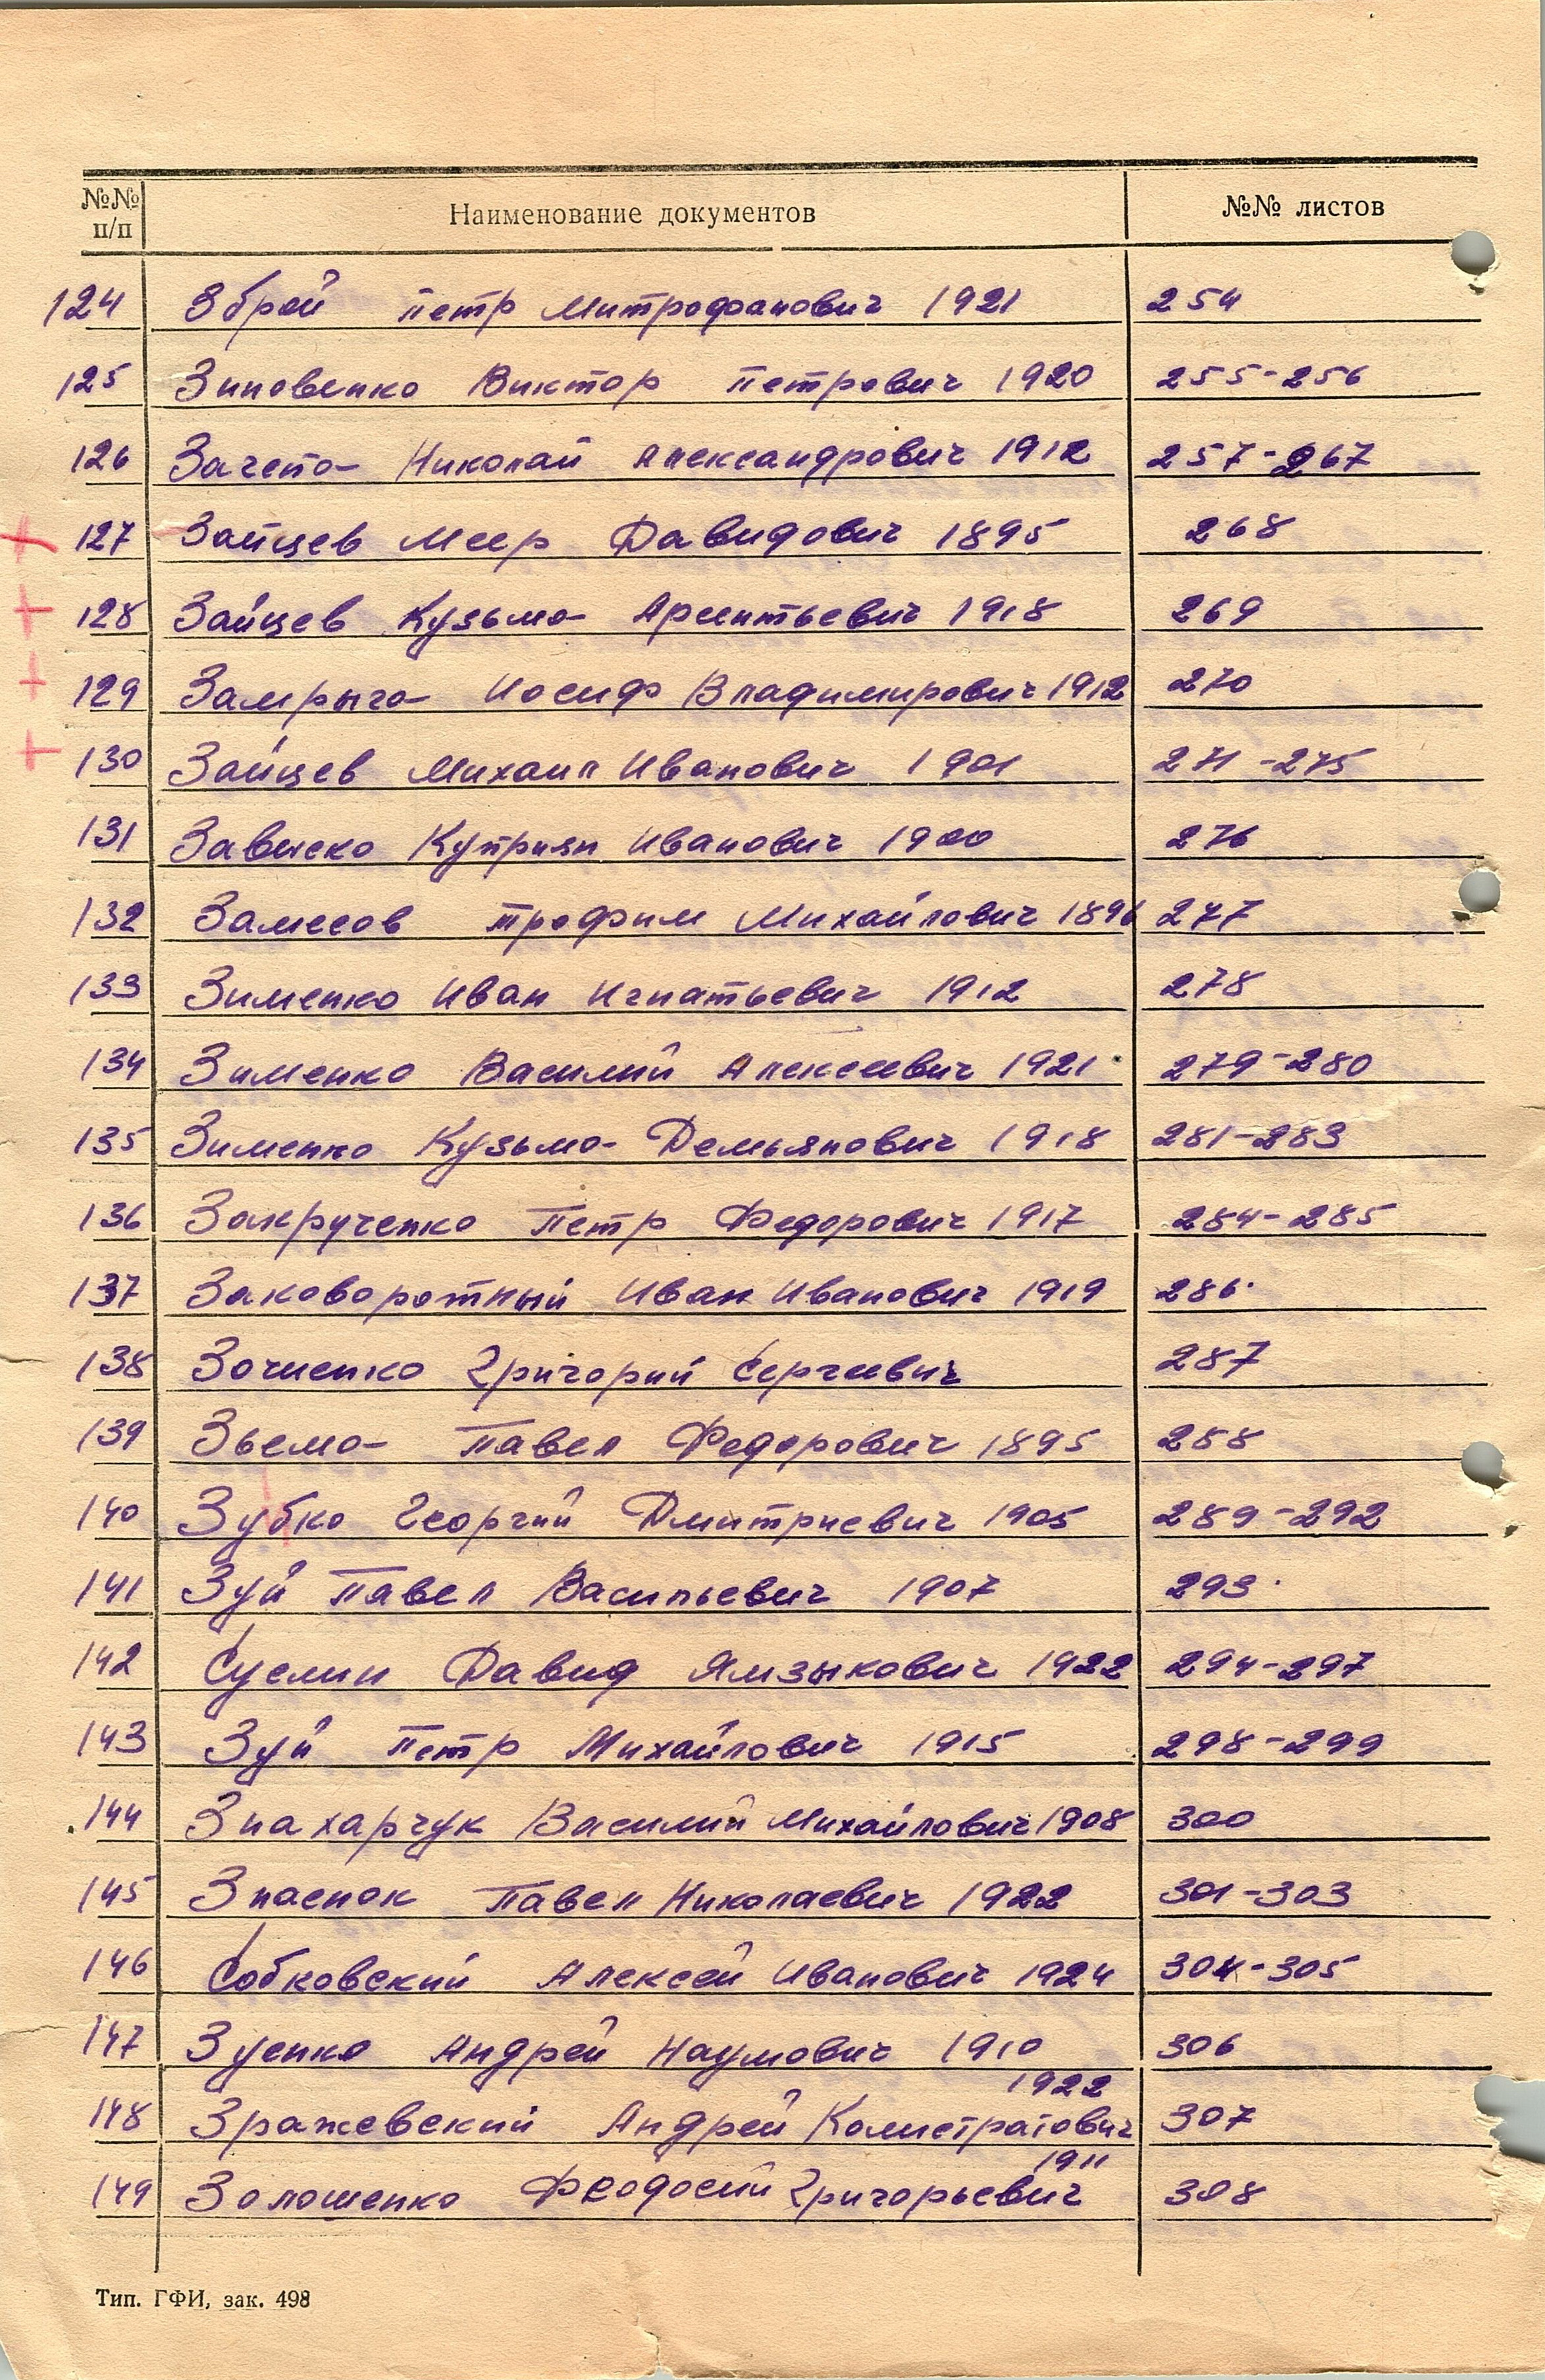 №№ п/п Наименование документов №№ листов
124 Зброй Петр Митрофанович 1921 254
125 Зиновенко Виктор Петрович 1920 255-256
126 Зачепа Николай Александрович 1912 257-267
127 Зайцев Меер Давидович 1895 268
128 Зайцев Кузьма Арсентьевич 1918 269
129 Замрыга Иосиф Владимирович 1912 270
130 Зайцев Михаил Иванович 1901 271-275
131 Куприян Иванович 1900 276
132 Замесов Трофим Михайлович 1896 277
133 Зименко Иван Игнатьевич 1912 278
134 Зименко Василий Алексеевич 1921 279-280
135 Зименко Кузьма Демьянович 1918 281-283
136 Закрученко Петр Федорович 1917 284-285
137 Заковоротный Иван Иванович 1919 286
138 Григорий Сергеевич 287
139 Зьема Павел Федорович 1895 288
140 Зубко Георгий Дмитриевич 1905 289-292
141 Зуй Павел Васильевич 1907 293
142 Суслин Давид 1922 294-297
143 Зуй Петр Михайлович 1915 298-299
144 Знахарчук Василий Михайлович 1908 300
145 Павел Николаевич 1922 301-303
146 Собковский Алексей Иванович 1924 304-305
147 Зуенко Андрей Наумович 1910 306
1922
148 Зражевский Андрей Калистратович 307
1911
149 Золошенко Феодосий Григорьевич 308
Тип. ГФИ, зак. 498